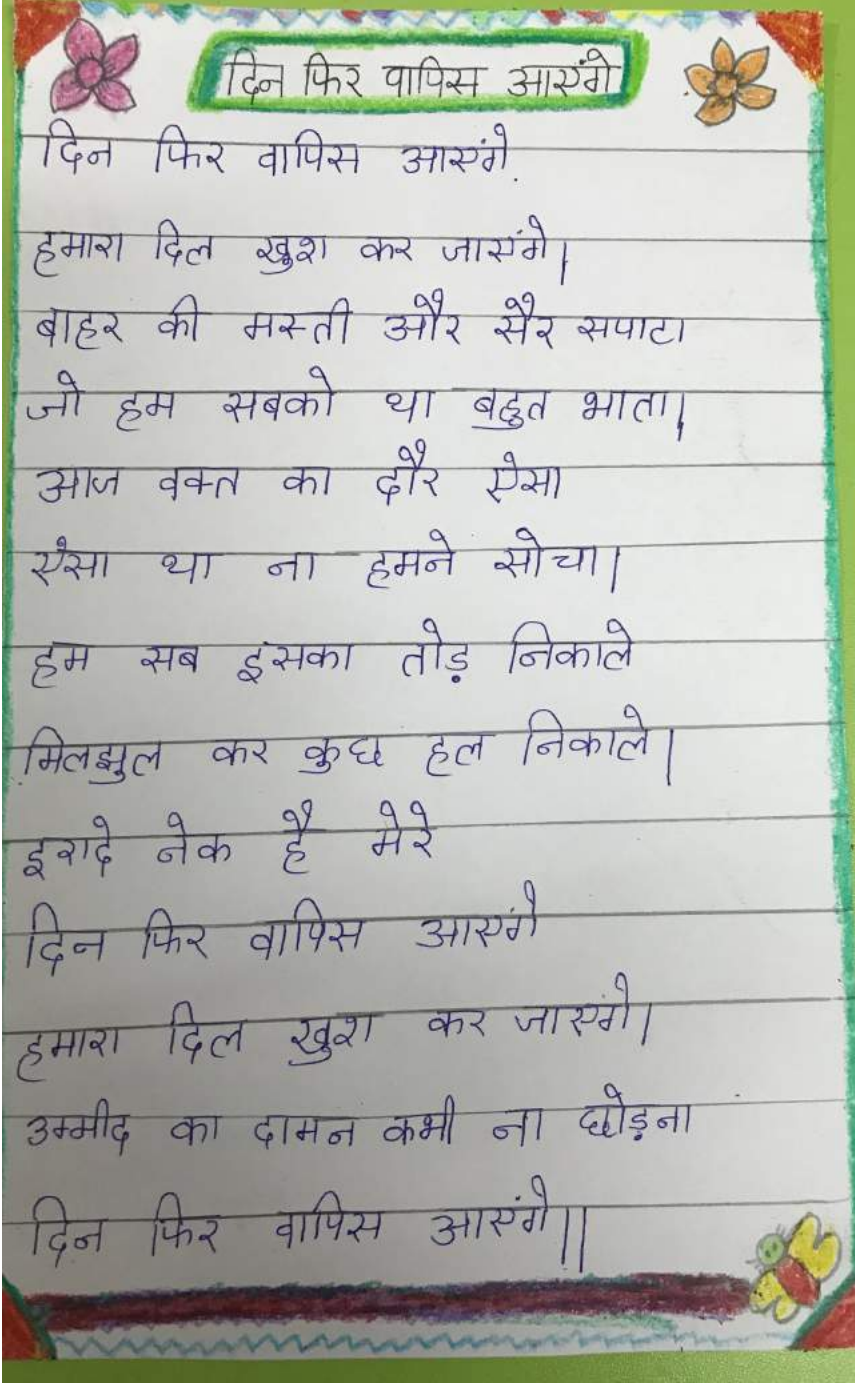 दिन फिर वापिस आएंगे
दिन फिर वापिस आएंगे
हमारा दिल खुश कर जाएंगे।
बाहर की मस्ती और सैर सपाटा
जो हम सबको था बहुत भाता।
आज वक्त का दौर ऐसा
ऐसा था ना हमने सोचा।
हम सब इसका तोड़ निकाले
मिलझुल कर कुछ हल निकाले।
इरादे नेक है मेरे
दिन फिर वापिस आएंगे
हमारा दिल खुश कर जाएंगे।
उम्मीद का दामन कभी ना छोड़ना
दिन फिर वापिस आएंगे॥